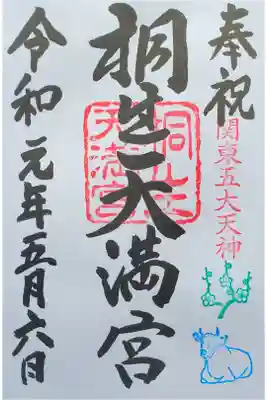 奉祝
関東五大天神
桐生天満宮
桐生
天満宮
令和元年五月六日